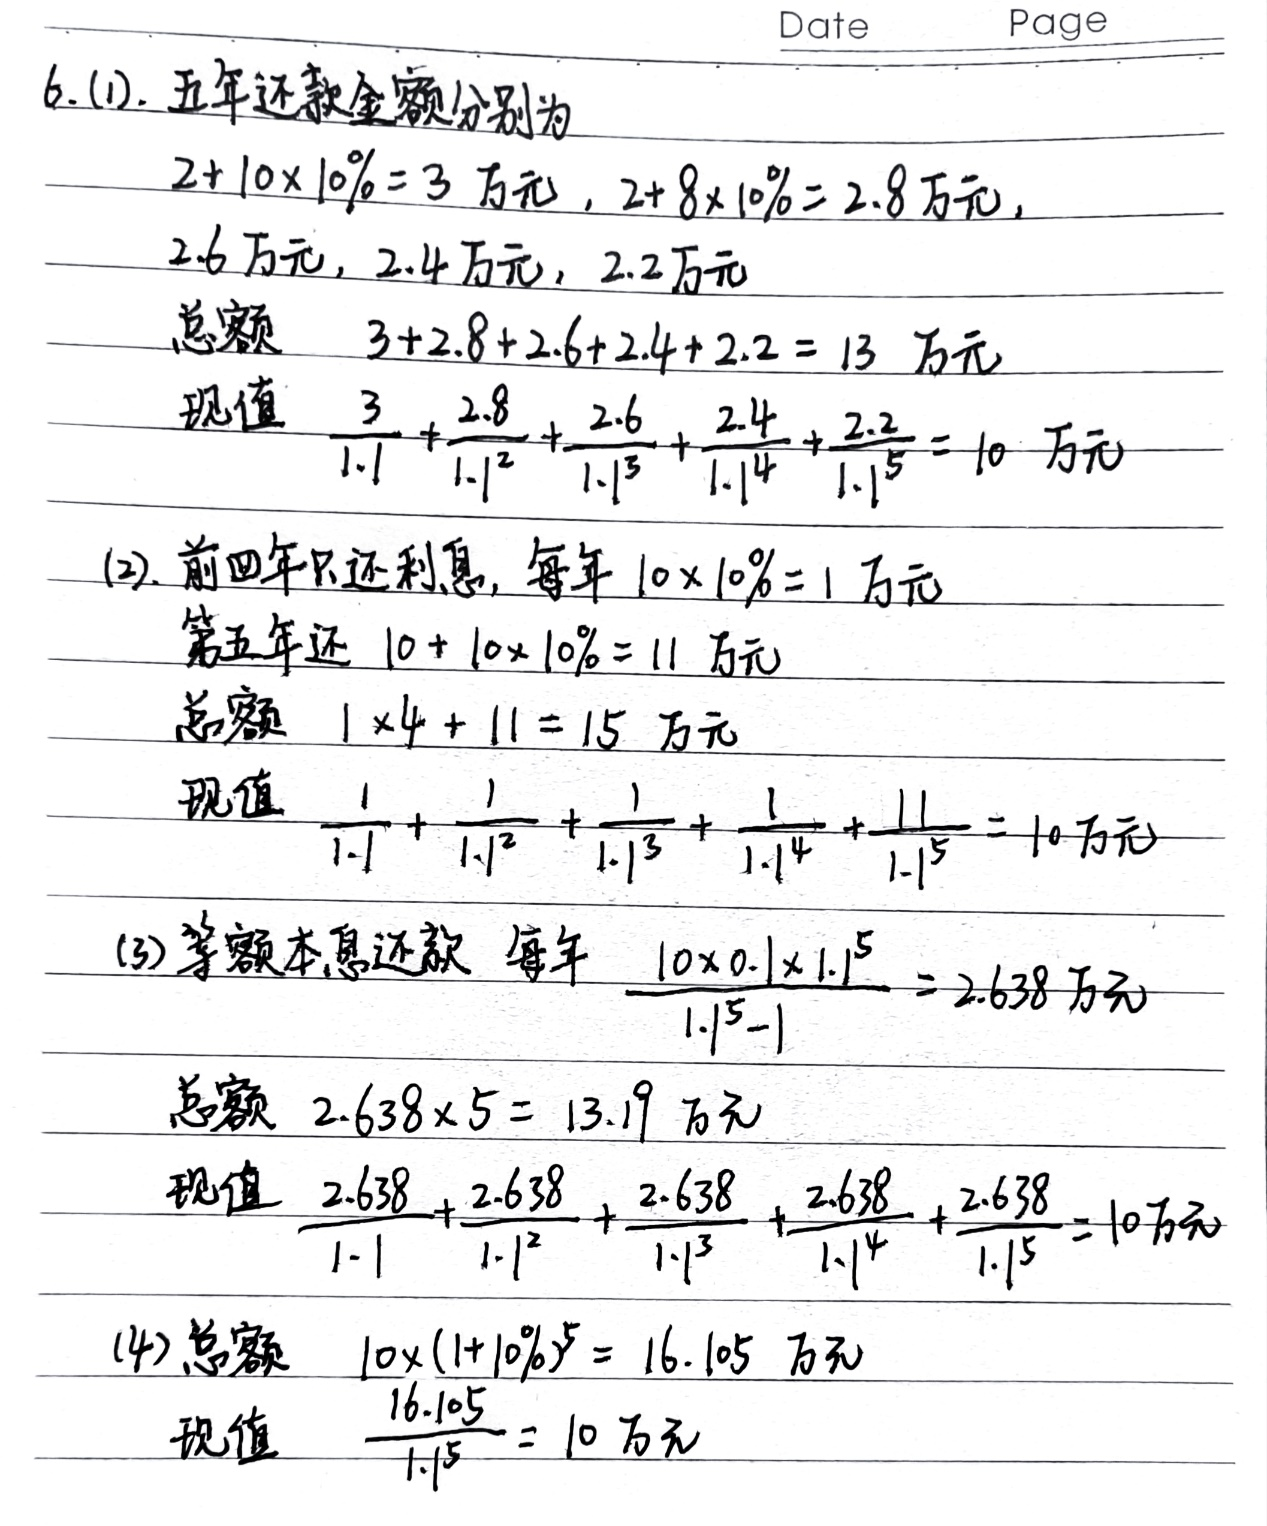 Date Page
6.(1). 五年还款金额分别为
2+10×10%=3 万元, 2+8×10%=2.8万元,
2.6万元, 2.4万元, 2.2万元
总额 3+2.8+2.6+2.4+2.2=13 万元
现值 3/1.1 + 2.8/1.1² + 2.6/1.1³ + 2.4/1.1⁴ + 2.2/1.1⁵ = 10 万元
(2). 前四年只还利息, 每年 10×10%=1 万元
第五年还 10+10×10%=11 万元
总额 1×4+11=15 万元
现值 1/1.1 + 1/1.1² + 1/1.1³ + 1/1.1⁴ + 11/1.1⁵ = 10万元
(3) 等额本息还款 每年 10×0.1×1.1⁵/1.1⁵-1 = 2.638万元
总额 2.638×5= 13.19 万元
现值 2.638/1.1 + 2.638/1.1² + 2.638/1.1³ + 2.638/1.1⁴ + 2.638/1.1⁵ = 10万元
(4) 总额 10×(1+10%)⁵ = 16.105 万元
现值 16.105/1.1⁵ = 10 万元